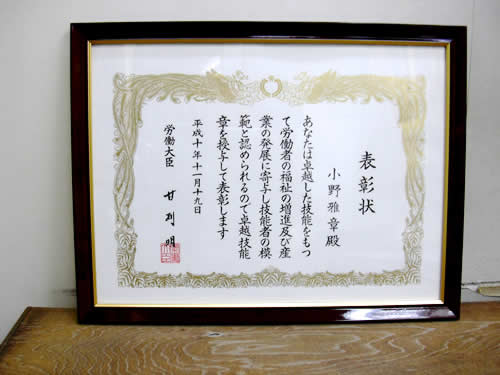 表彰状
小野雅章殿
あなたは卓越した技能をもつ
て労働者の福祉の増進及び産
業の発展に寄与し技能者の模
範と認められるので卓越技能
章を授与して表彰します
平成十年十一月十九日
労働大臣
甘利明